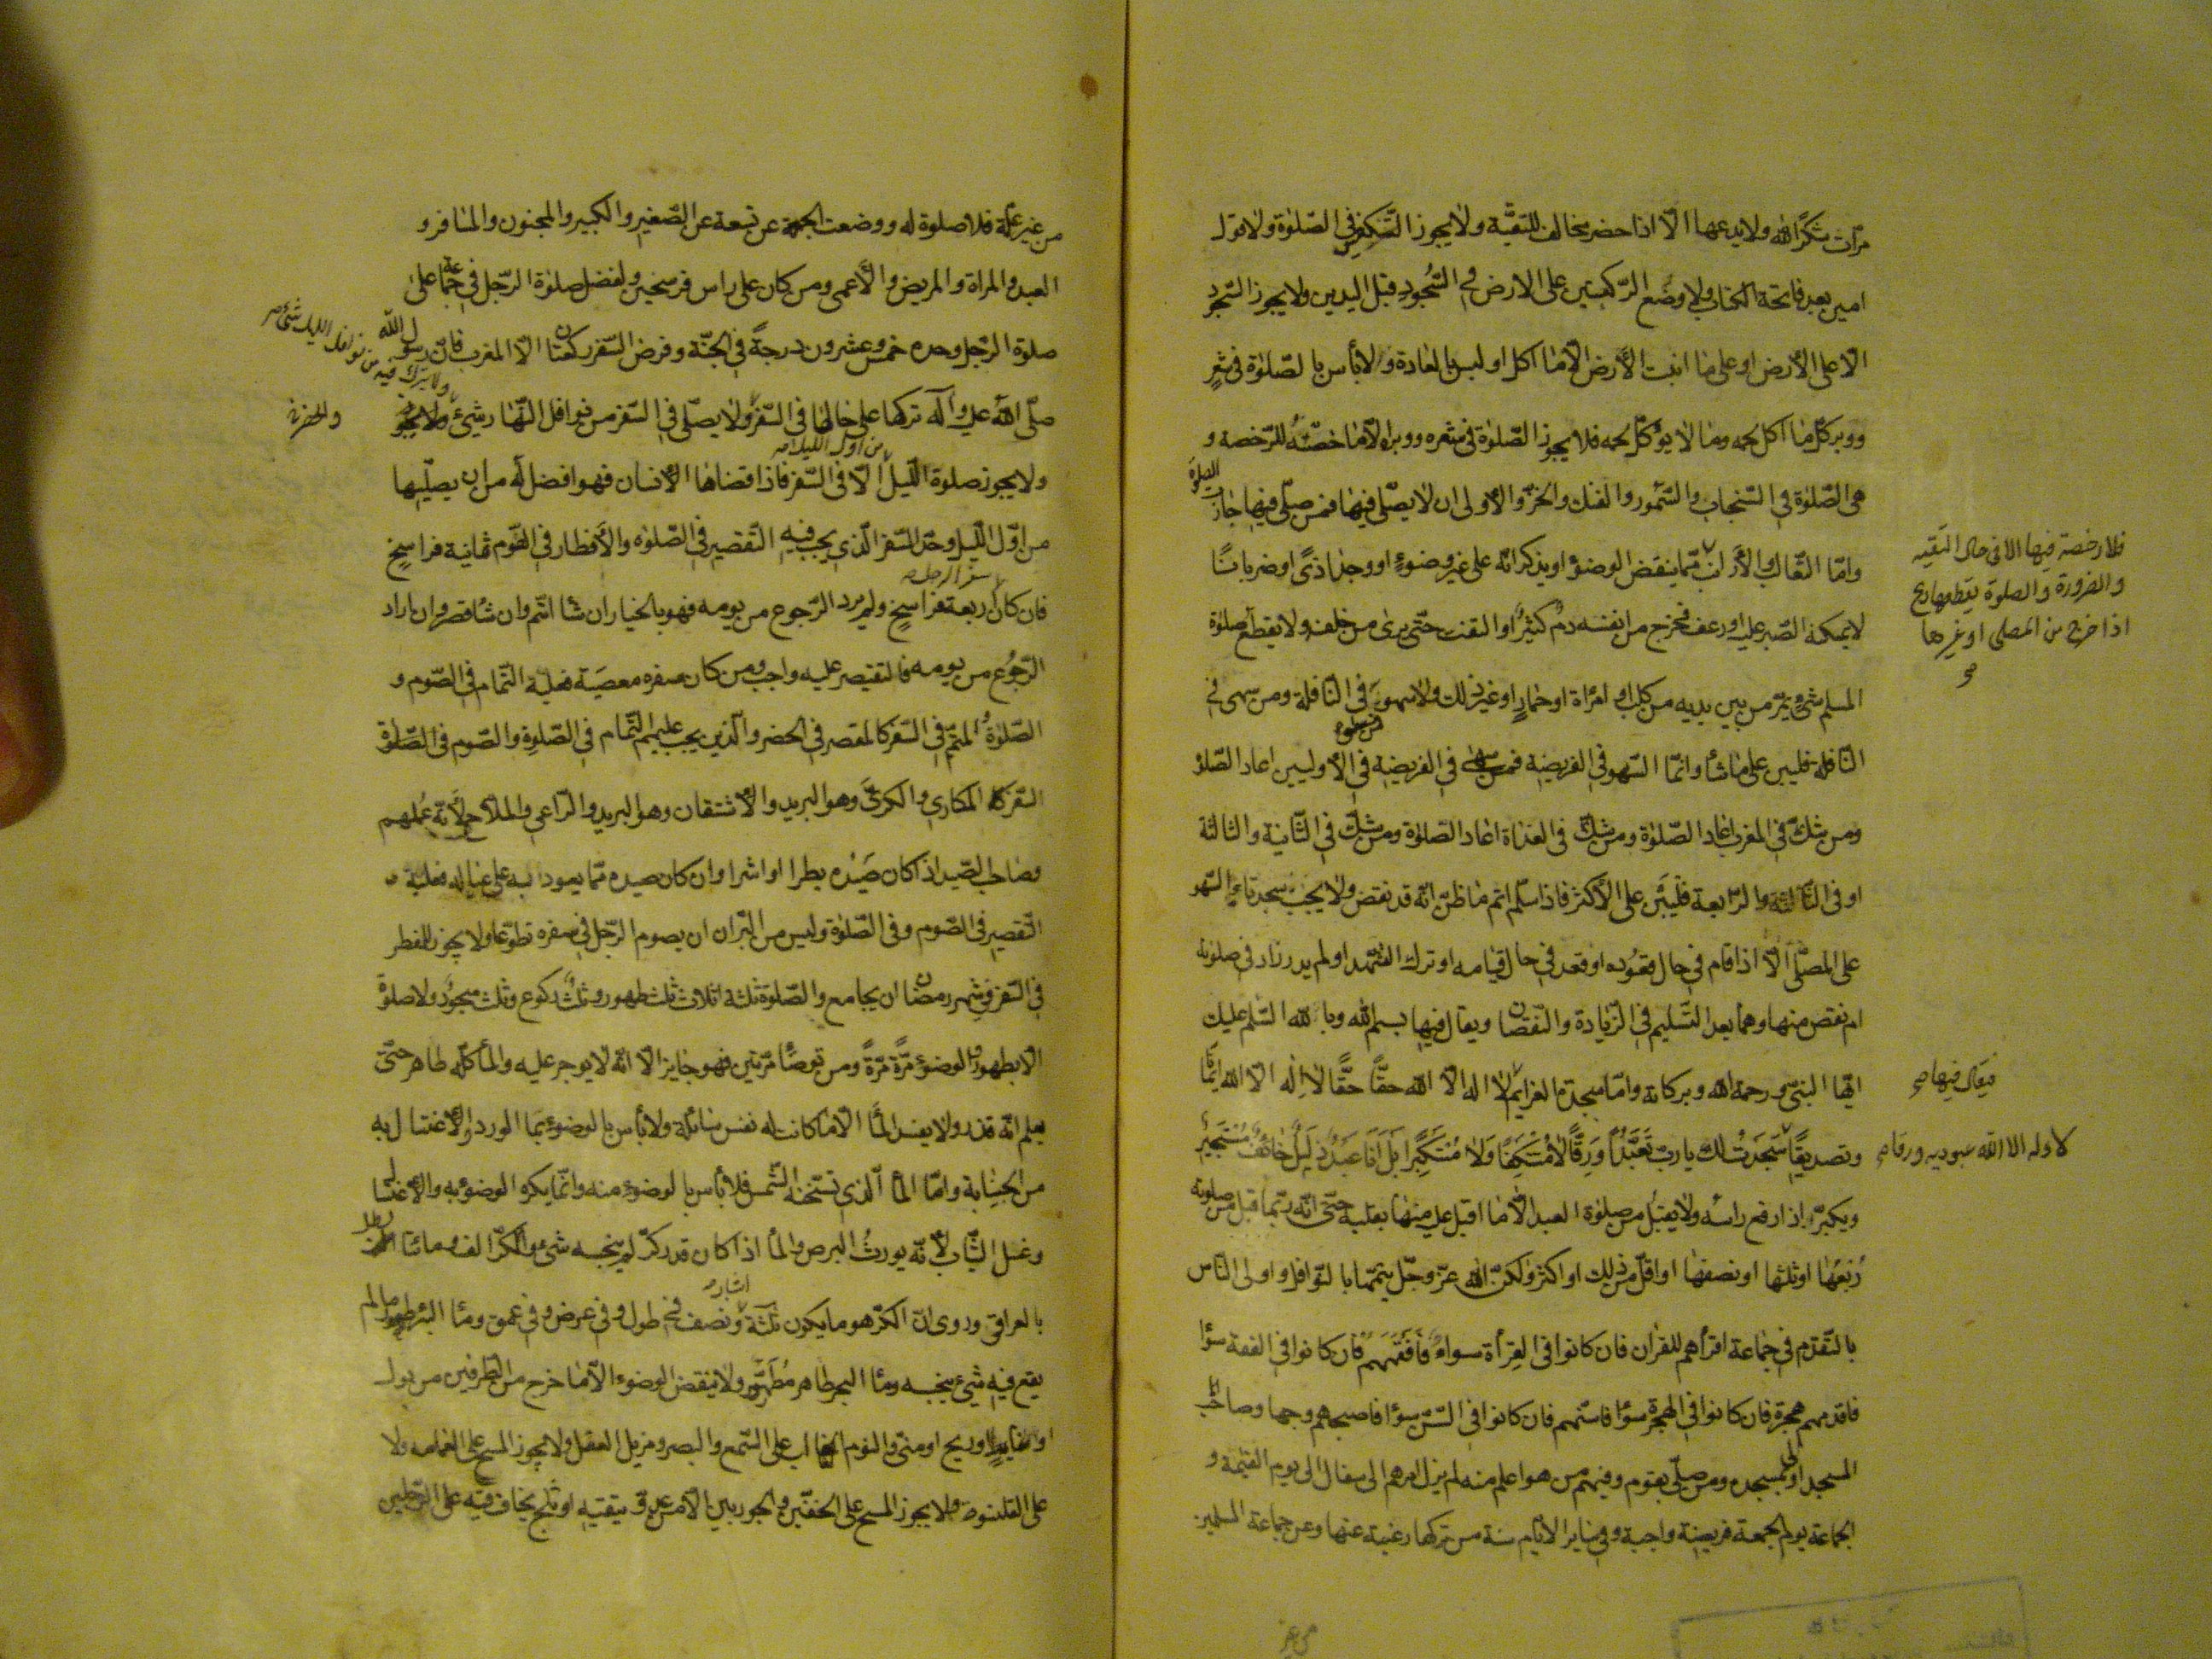 مرّات شكرًا لله ولا يدعها الّا اذا حضر مخالف للتقيّة ولا يجوز التّكفير في الصّلوة ولا قول
امين بعد فاتحة الكتاب ولا وضع الرّكبتين على الارض في السّجود قبل اليدين ولا يجوز السّجود
الّا على الأرض او على ما انبت الأرض الّا ما اكل او لبس بالعادة ولا بأس بالصّلوة في شعرٍ
ووبر كلّ ما اكل لحمه وما لا يؤكل لحمه فلا يجوز الصّلوة في شعره ووبره الّا ما خصّته للرّخصة و
هى الصّلوة في السّنجاب والسّمّور والفنك والخزّ والأولى ان لا يصلّى فيها فمن صلّى فيها جازت الصلوة
وامّا الثّعالب والأرانب ممّا ينقض الوضوء او يذكر انّه على غير وضوءٍ او وجد اذىً او ضربانًا
فلا رخصة فيها الا فى حال التقيه
والضرورة والصلوة يقطعها ريح
اذا خرج من المصلى او غيرها
لا يمكنه الصّبر عليه او رعف فخرج من انفه دم كثيرٌ او التفت حتّى يرى من خلفه ولا يقطع صلوة
المسلم شئ يمرّ من بين يديه من كلب او امرأة او حمارٍ او غير ذلك ولا سهو في النّافلة ومن سهى في
النّافلة فليبن على ما شاء وانّما السّهو في الفريضة فمن سهى في الفريضة في الأوليين اعاد الصّلوة
ومن شكّ في المغرب اعاد الصّلوة ومن شكّ فى الغداة اعاد الصّلوة ومن شكّ في الثّانية والثالثة
او فى الثّالثة والرّابعة فليبن على الأكثر فاذا سلّم اتم ما ظنّ انّه قد نقص ولا يجب سجدتا السّهو
على المصلّى الّا اذا قام في حال قعوده او قعد في حال قيامه او ترك التشهد او لم يدر زاد فى صلوته
ام نقص منها وهما بعد التّسليم في الزّيادة والنّقصان ويقال فيها بسم الله وبالله السّلم عليك
ايّها النبىّ ورحمة الله وبركاته وامّا سجدة العزايم لا اله الّا الله حقًّا حقًّا لا اله الّا الله ايمانًا
فيقال فيها
وتصديقًا سجدت لك يا ربّ تعبّدًا ورقًّا لا مستنكفًا ولا مستكبرًا بل انا عبد ذليل خائف مستجير
لا اله الا الله عبوديه ورقا
ويكبّر اذا رفع رأسه ولا يقبل من صلوة العبد الّا ما اقبل عليه منها بقلبه حتّى انّه ربّما قبل من صلوته
ربعها او ثلثها او نصفها او اقلّ من ذلك او اكثر ولكنّ الله عزّ وجلّ يتمّها بالنّوافل واولى النّاس
بالتّقدّم في جماعة اقرأهم للقران فان كانوا فى القرأة سواء فافقههم فان كانوا فى الفقه سواء
فاقدمهم هجرة فان كانوا في الهجرة سواء فاسنّهم فان كانوا فى السّنّ سواء فاصبحهم وجها وصاحب
المسجد اولى بمسجده ومن صلّى بقوم وفيهم من هو اعلم منه لم يزل امرهم الى سفال الى يوم القيمة و
الجماعة يوم الجمعة فريضة واجبة وفي سائر الأيّام سنة من تركها رغبة عنها وعن جماعة المسلمين
من غير
من غير علّة فلا صلوة له ووضعت الجمعة عن تسعة عن الصّغير والكبير والمجنون والمسافر و
العبد والمراة والمريض والأعمى ومن كان على راس فرسخين ولفضل صلوة الرّجل في جماعة على
صلوة الرّجل وحده خمس وعشرون درجةً في الجنّة وفرض السّفر ركعتان الّا المغرب فانّ رسول الله
صلّى الله عليه وآله تركها على حالها فى السّفر ولا يصلّى في السّفر من نوافل النّهار شئ ولا يجوز
ولا يترك فيه من نوافل الليل شئ
والحضر
ولا يجوز صلوة اللّيل الّا فى السّفر فاذا قضاها الأنسان فهو افضل له من ان يصلّيها
من اول الليل
من اوّل اللّيل وحدّ السّفر الّذى يجب فيه التّقصير في الصّلوة والأفطار في الصّوم ثمانية فراسخ
فان كان اربعة فراسخ ولم يرد الرّجوع من يومه فهو بالخيار ان شاء اتمّ وان شاء قصر وان اراد
سفر الرجل
الرّجوع من يومه فالتقيصر عليه واجب ومن كان سفره معصية فعليه التّمام في الصّوم و
الصّلوة والمتمّ في السّفر كالمقصر في الحضر والّذين يجب عليهم التّمام في الصّلوة والصّوم فى الصّلوة
السّفر كالمكارى والكرىّ وهو البريد والاشتقان وهو البريد والرّاعى والملّاح لأنّه عملهم
وصاحب الصّيد اذا كان صيده بطرا او اشرا وان كان صيده ممّا يعود به على عياله فعليه
التّقصير فى الصّوم وفى الصّلوة وليس من البرّ ان يصوم الرّجل في سفره تطوّعا ولا يجوز للمفطر
في السّفر في شهر رمضان ان يجامع والصّلوة ثلثة اثلاث ثلث طهور وثلث ركوع وثلث سجود ولا صلوة
الّا بطهور والوضوء مرّةً مرّةً ومن توضّأ مرّتين فهو جايز الّا انّه لا يوجر عليه والماء كلّه طاهر حتّى
يعلم انّه قذر ولا يفسد الماء الّا ما كانت له نفس سائلة ولا بأس بالوضوء بماء الورد والأغتسال به
من الجنابة وامّا الماء الّذى تسخنه الشّمس فلا بأس بالوضوء منه وانّما يكره الوضوء به والأغتسال
وغسل الثّياب لأنّه يورث البرص والماء اذا كان قدر كرّ لم ينجسه شئ والكرّ الف ومائتا رطل
بالعراقى وروى انّ الكرّ هو ما يكون ثلثة ونصف في طول وفى عرض وفى عمق وماء البئر طهور ما لم
اشبار
يقع فيه شئ ينجسه وماء البحر طاهر مطهّر ولا ينقض الوضوء الّا ما خرج من الطّرفين من بول
او غايط او ريح او منى والنوم الغالب على السّمع والبصر ومزيل العقل ولا يجوز المسح على العمامه ولا
على القلنسوة ولا يجوز المسح على الخفّين والجوربين الّا من عدوّ يتقيه او ثلج يخاف فيه على الرّجلين